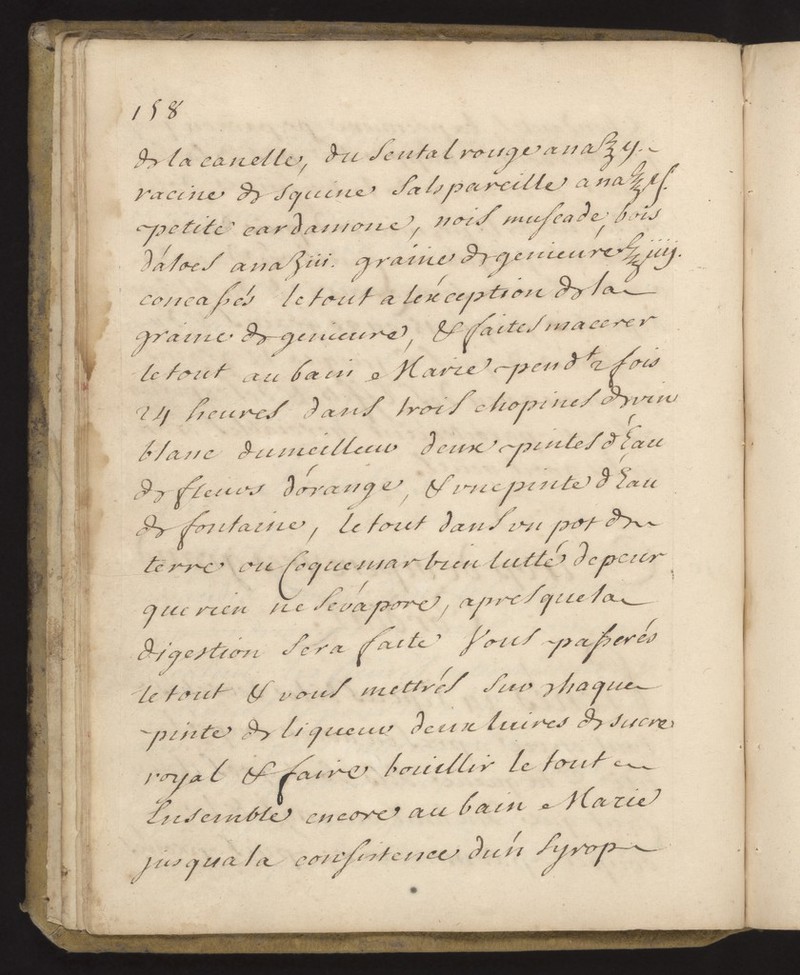 158
de la canelle, du Sental rouge ana ℥ij.
racine de squine Salspareille ana ℥jß.
petite cardamone, nois muscade, bois
d'áloes ana ʒiii. graine de genieure ℥iiij.
concassés le tout a léxception de la
graine de genieure, & faites macerer
le tout au bain Marie pendt. 2 fois
24 heures dans trois chopines de vin
blanc du meilleur deux pintes d'Eau
de fleurs d'órange, & une pinte d'Eau
de fontaine, le tout dans un pot de
terre ou Coquemar bien lutté de peur
que rien ne s'evápore, apres que la
digestion sera faite Vous passerés
le tout & vous mettrés sur chaque
pinte de liqueur deux livres de sucre
royal & faire boüillir le tout
Ensemble encore au bain Marie
jusqua la consistence dun Syrop